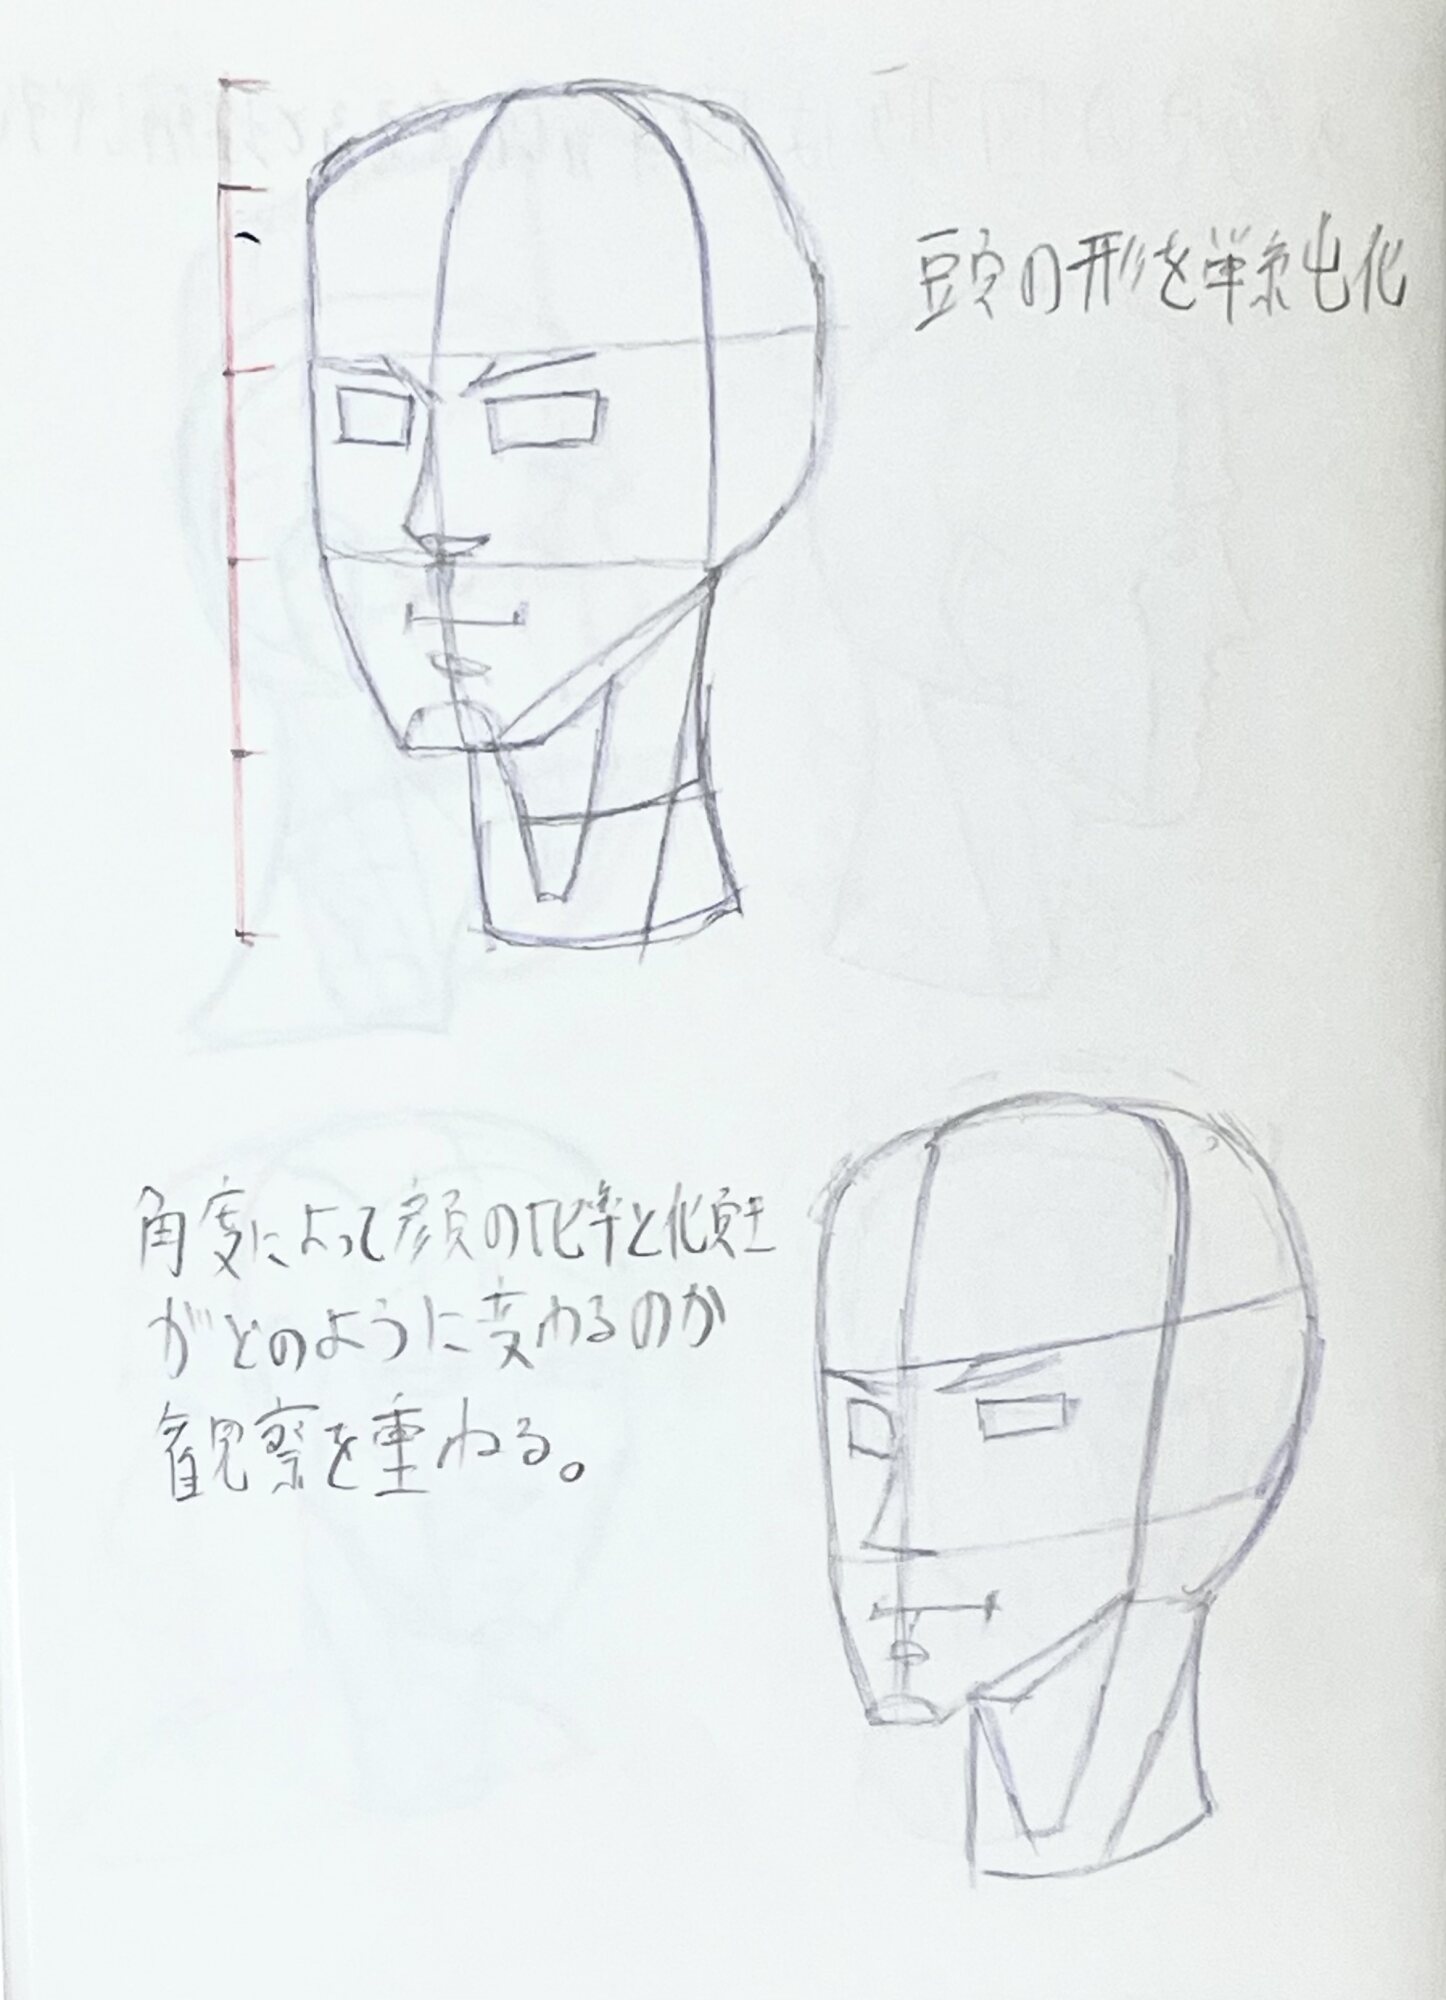 頭の形を単純化
角度によって顔の比率と傾き
がどのように変わるのか
観察を重ねる。